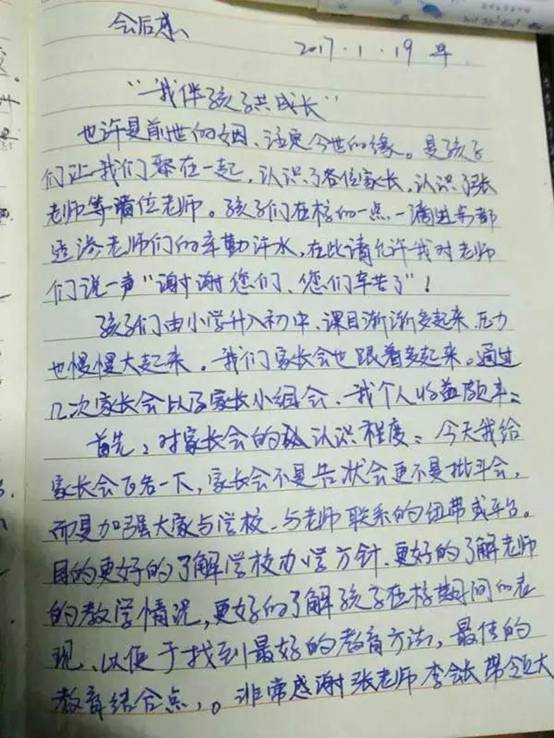 会后感
2017.1.19 早
"我伴孩子共成长"
也许是前世的因、注定今世的缘。是孩子
们让我们聚在一起,认识了各位家长,认识了张
老师等诸位老师。孩子们在校的一点一滴进步都
渗老师们的辛勤汗水,在此请允许我对老师
们说一声"谢谢您们、您们辛苦了"!
孩子们由小学升入初中、课目渐渐多起来、压力
也慢慢大起来。我们家长会也跟着多起来。通过
几次家长会以及家长小组会、我个人收益颇丰:
首先:对家长会的认识程度:今天我给
家长会正名一下,家长会不是告状会更不是批斗会,
而是加强大家与学校、与老师联系的纽带或平台。
目的更好的了解学校办学方针、更好的了解老师
的教学情况,更好的了解孩子在校期间的表
现、以便于找到最好的教育方法,最佳的
教育结合点,。非常感谢张老师 李会长 带领大